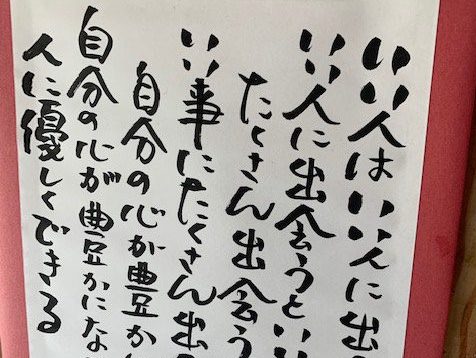 いい人はいい人に出
いい人に出会うとい
たくさん出会う
いい事にたくさん出
自分の心が豊か
自分の心が豊かにな
人に優しくできる